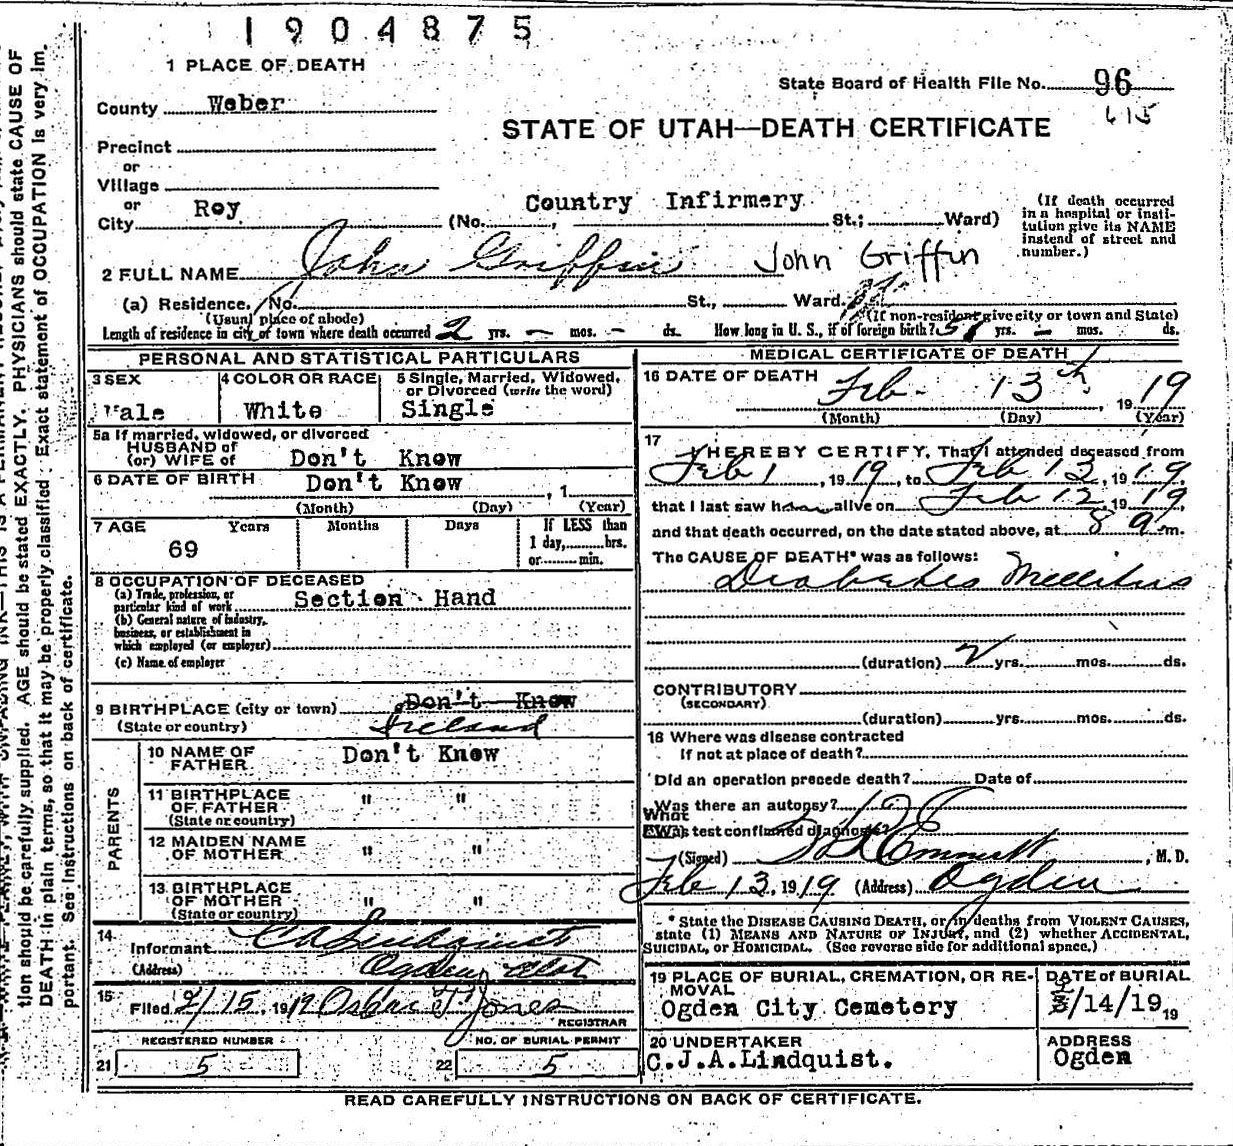 1904875
1 PLACE OF DEATH
State Board of Health File No. 96
615
County Weber
STATE OF UTAH—DEATH CERTIFICATE
Precinct
or
Village
or
City Roy (No. Country Infirmery St.; Ward)
(If death occurred in a hospital or insti-
tution give its NAME
instead of street and
number.)
2 FULL NAME John Griffin John Griffin
(a) Residence. No. St., Ward.
(Usual place of abode) (If non-resident give city or town and State)
Length of residence in city or town where death occurred 2 yrs. — mos. — ds. How long in U. S., if of foreign birth? yrs. — mos. ds.
PERSONAL AND STATISTICAL PARTICULARS
3 SEX 4 COLOR OR RACE 5 Single, Married, Widowed,
or Divorced (write the word)
Male White Single
5a If married, widowed, or divorced
HUSBAND of
(or) WIFE of Don't Know
6 DATE OF BIRTH Don't Know , 1
(Month) (Day) (Year)
7 AGE Years Months Days If LESS than
1 day, hrs.
or min.
69
8 OCCUPATION OF DECEASED
(a) Trade, profession, or
particular kind of work Section Hand
(b) General nature of industry,
business, or establishment in
which employed (or employer)
(c) Name of employer
9 BIRTHPLACE (city or town) Don't Know
(State or country) Ireland
PARENTS
10 NAME OF
FATHER Don't Know
11 BIRTHPLACE
OF FATHER " "
(State or country)
12 MAIDEN NAME
OF MOTHER " "
13 BIRTHPLACE
OF MOTHER " "
(State or country)
14
Informant
(Address) Ogden Utah
15
Filed 2/15, 1919 Oscar T Jones
REGISTRAR
REGISTERED NUMBER NO. OF BURIAL PERMIT
21 5 22 5
MEDICAL CERTIFICATE OF DEATH
16 DATE OF DEATH Feb. 13th, 1919
(Month) (Day) (Year)
17
I HEREBY CERTIFY, That I attended deceased from
Feb 1, 1919, to Feb 13, 1919,
that I last saw him alive on Feb 12, 1919,
and that death occurred, on the date stated above, at 8 a m.
The CAUSE OF DEATH* was as follows:
Diabetes Mellitus
(duration) 2 yrs. mos. ds.
CONTRIBUTORY
(SECONDARY)
(duration) yrs. mos. ds.
18 Where was disease contracted
If not at place of death?
Did an operation precede death? Date of
Was there an autopsy?
What
test confirmed diagnosis?
(Signed) Emmett, M. D.
Feb 13, 1919 (Address) Ogden
* State the DISEASE CAUSING DEATH, or in deaths from VIOLENT CAUSES,
state (1) MEANS AND NATURE OF INJURY, and (2) whether ACCIDENTAL,
SUICIDAL, or HOMICIDAL. (See reverse side for additional space.)
19 PLACE OF BURIAL, CREMATION, OR RE-
MOVAL
Ogden City Cemetery
DATE of BURIAL
/14/19 19
20 UNDERTAKER
C.J.A.Lindquist.
ADDRESS
Ogden
READ CAREFULLY INSTRUCTIONS ON BACK OF CERTIFICATE.
tion should be carefully supplied. AGE should be stated EXACTLY. PHYSICIANS should state CAUSE OF
DEATH in plain terms, so that it may be properly classified. Exact statement of OCCUPATION is very im-
portant. See instructions on back of certificate.